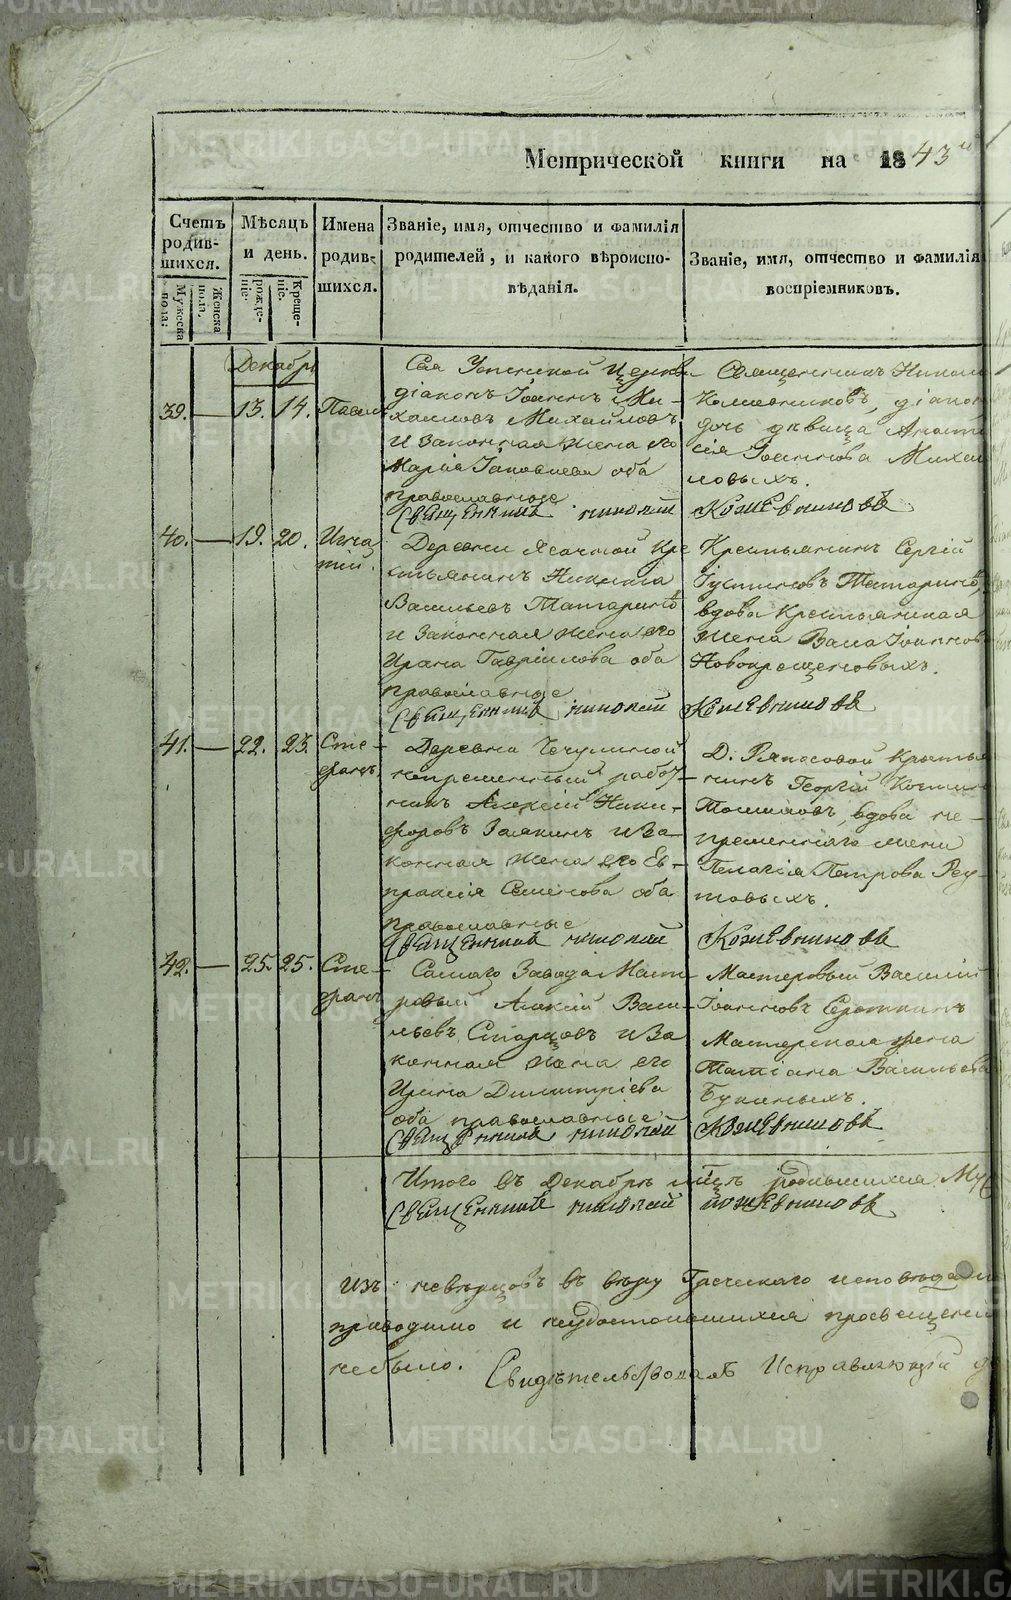 Метрической книги на 1843й
Счетъ родив-шихся.
Мужеска пола.
Женска пола.
Мѣсяцъ и день.
рожде-ніе.
Креще-ніе.
Имена родив-шихся.
Званіе, имя, отчество и фамилія
родителей, и какого вѣроиспо-
вѣданія.
Званіе, имя, отчество и фамилія
воспріемниковъ.
Декабрь
39. — 13. 14. Павелъ
Сея Успенской Церкви
діаконъ Іоаннъ Ми-
хаиловъ Михайловъ
и законная жена его
Марія Іаковлева оба
православные
Священникъ Николай
Кожевниковъ, діакон
дочь дѣвица Анаста
сія Іоаннова Михаи
ловыхъ.
Священникъ Николай Кожевниковъ
40. — 19. 20. Игна
тій.
Деревни Ясачной кре
стьянинъ Никита
Васильевъ Татариновъ
и законная жена его
Ирина Гавріилова оба
православные
Крестьянинъ Сергій
Іустиновъ Татариновъ,
вдова крестьянская
жена Васса Іоаннова
Новокрещеновыхъ.
Священникъ Николай Кожевниковъ
41. — 22. 23. Сте-
фанъ
Деревни Чечулиной
непременный работ-
никъ Алексій Ники-
форовъ Залкинъ и за-
конная жена его Ев-
праксія Семенова оба
православные
Д. Ряпосовой крестья
нинъ Георгій
вдова не-
пременнаго жена
Пелагія Петрова Реу-
товыхъ.
Священникъ Николай Кожевниковъ
42. — 25. 25. Сте-
фанъ
Самаго Завода Масте
ровый Алексій Васи-
льевъ Старцовъ и за
конная жена его
Ирина Димитріева
оба православные
Мастеровый Василій
Іоанновъ Сероткинъ
Мастерская жена
Татіана Васильева
Букиныхъ.
Священникъ Николай Кожевниковъ
Итого въ Декабрѣ мцѣ родившихся Му
Священникъ Николай Кожевниковъ
Изъ невѣрцовъ въ вѣру Греческаго исповѣдан
приводимо и неудостоившихся просвещени
небыло.
Свидѣтельствовалъ Исправляющій д
METRIKI.GASO-URAL.RU